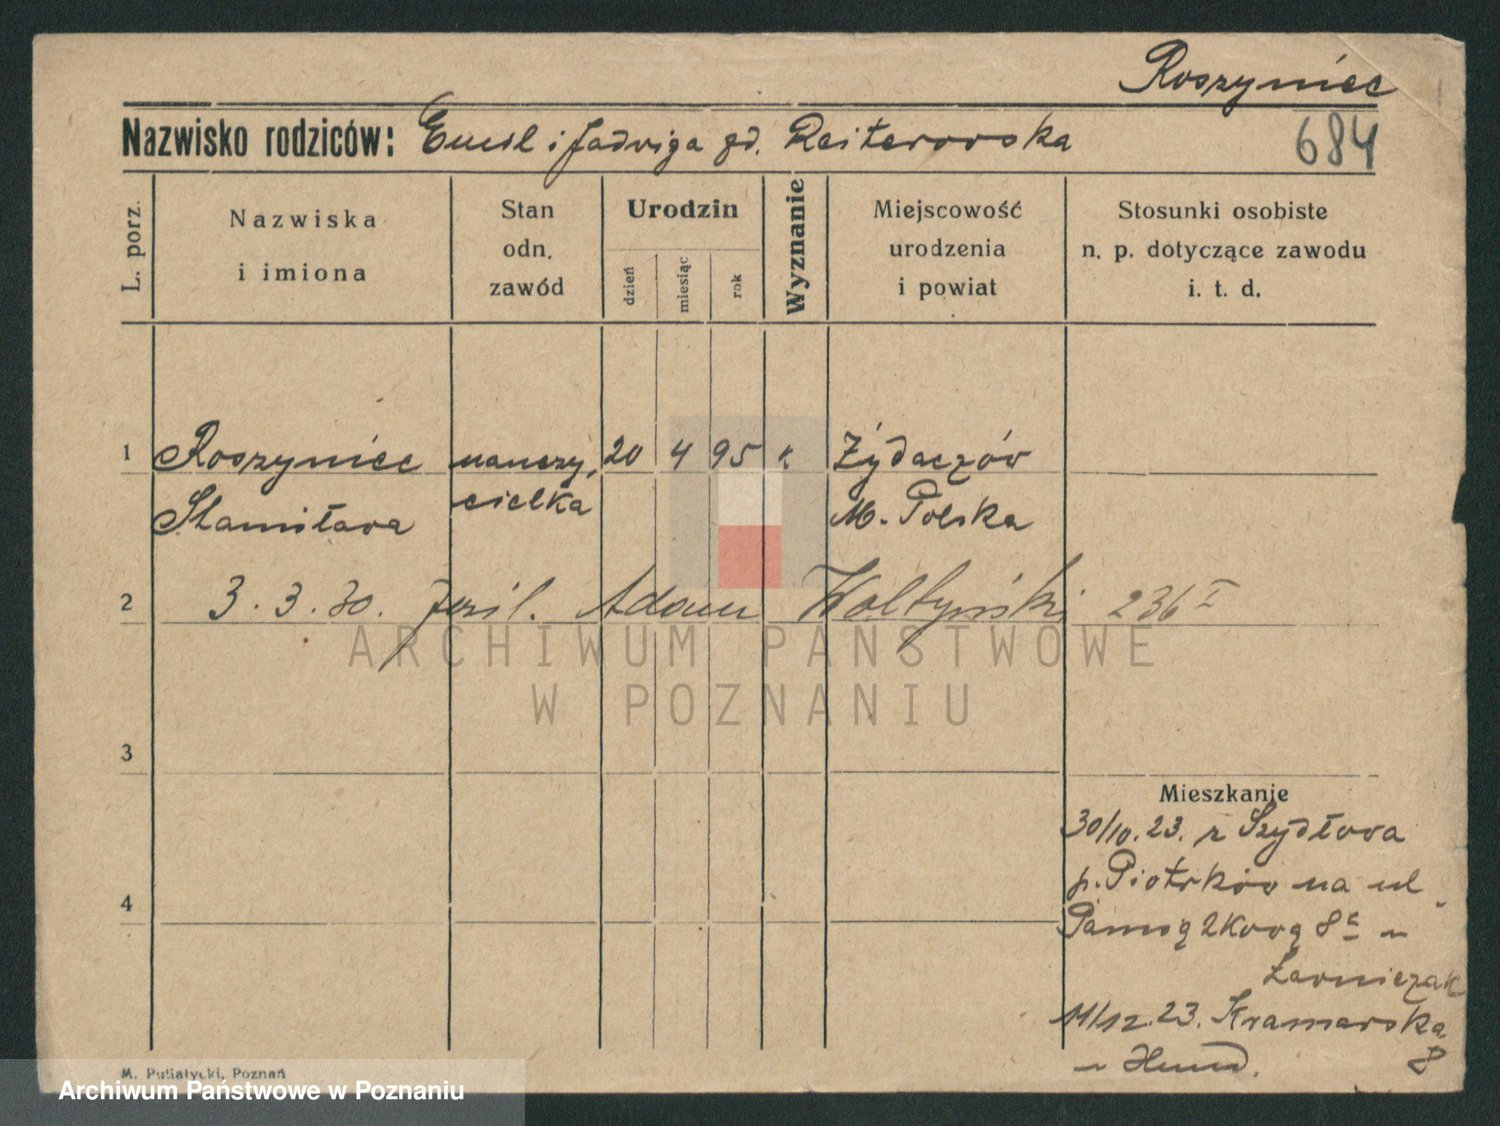 Roszyniec
Nazwisko rodziców: Emil i Jadwiga gd. Reiterowska
684
L. porz.
Nazwiska
i imiona
Stan
odn.
zawód
Urodzin
dzień
miesiąc
rok
Wyznanie
Miejscowość
urodzenia
i powiat
Stosunki osobiste
n. p. dotyczące zawodu
i. t. d.
1 Roszyniec nauczy- 20 4 95 k Żydaczów
Stanisława cielka M. Polska
2 3. 3. 30. Adam Woltyński 236 I
ARCHIWUM PAŃSTWOWE
W POZNANIU
3
Mieszkanie
30/10. 23. z Szydłowa
p. Piotrków na ul.
4
8
11/12. 23. Kramarska
8
M. Putiatycki, Poznań
Archiwum Państwowe w Poznaniu